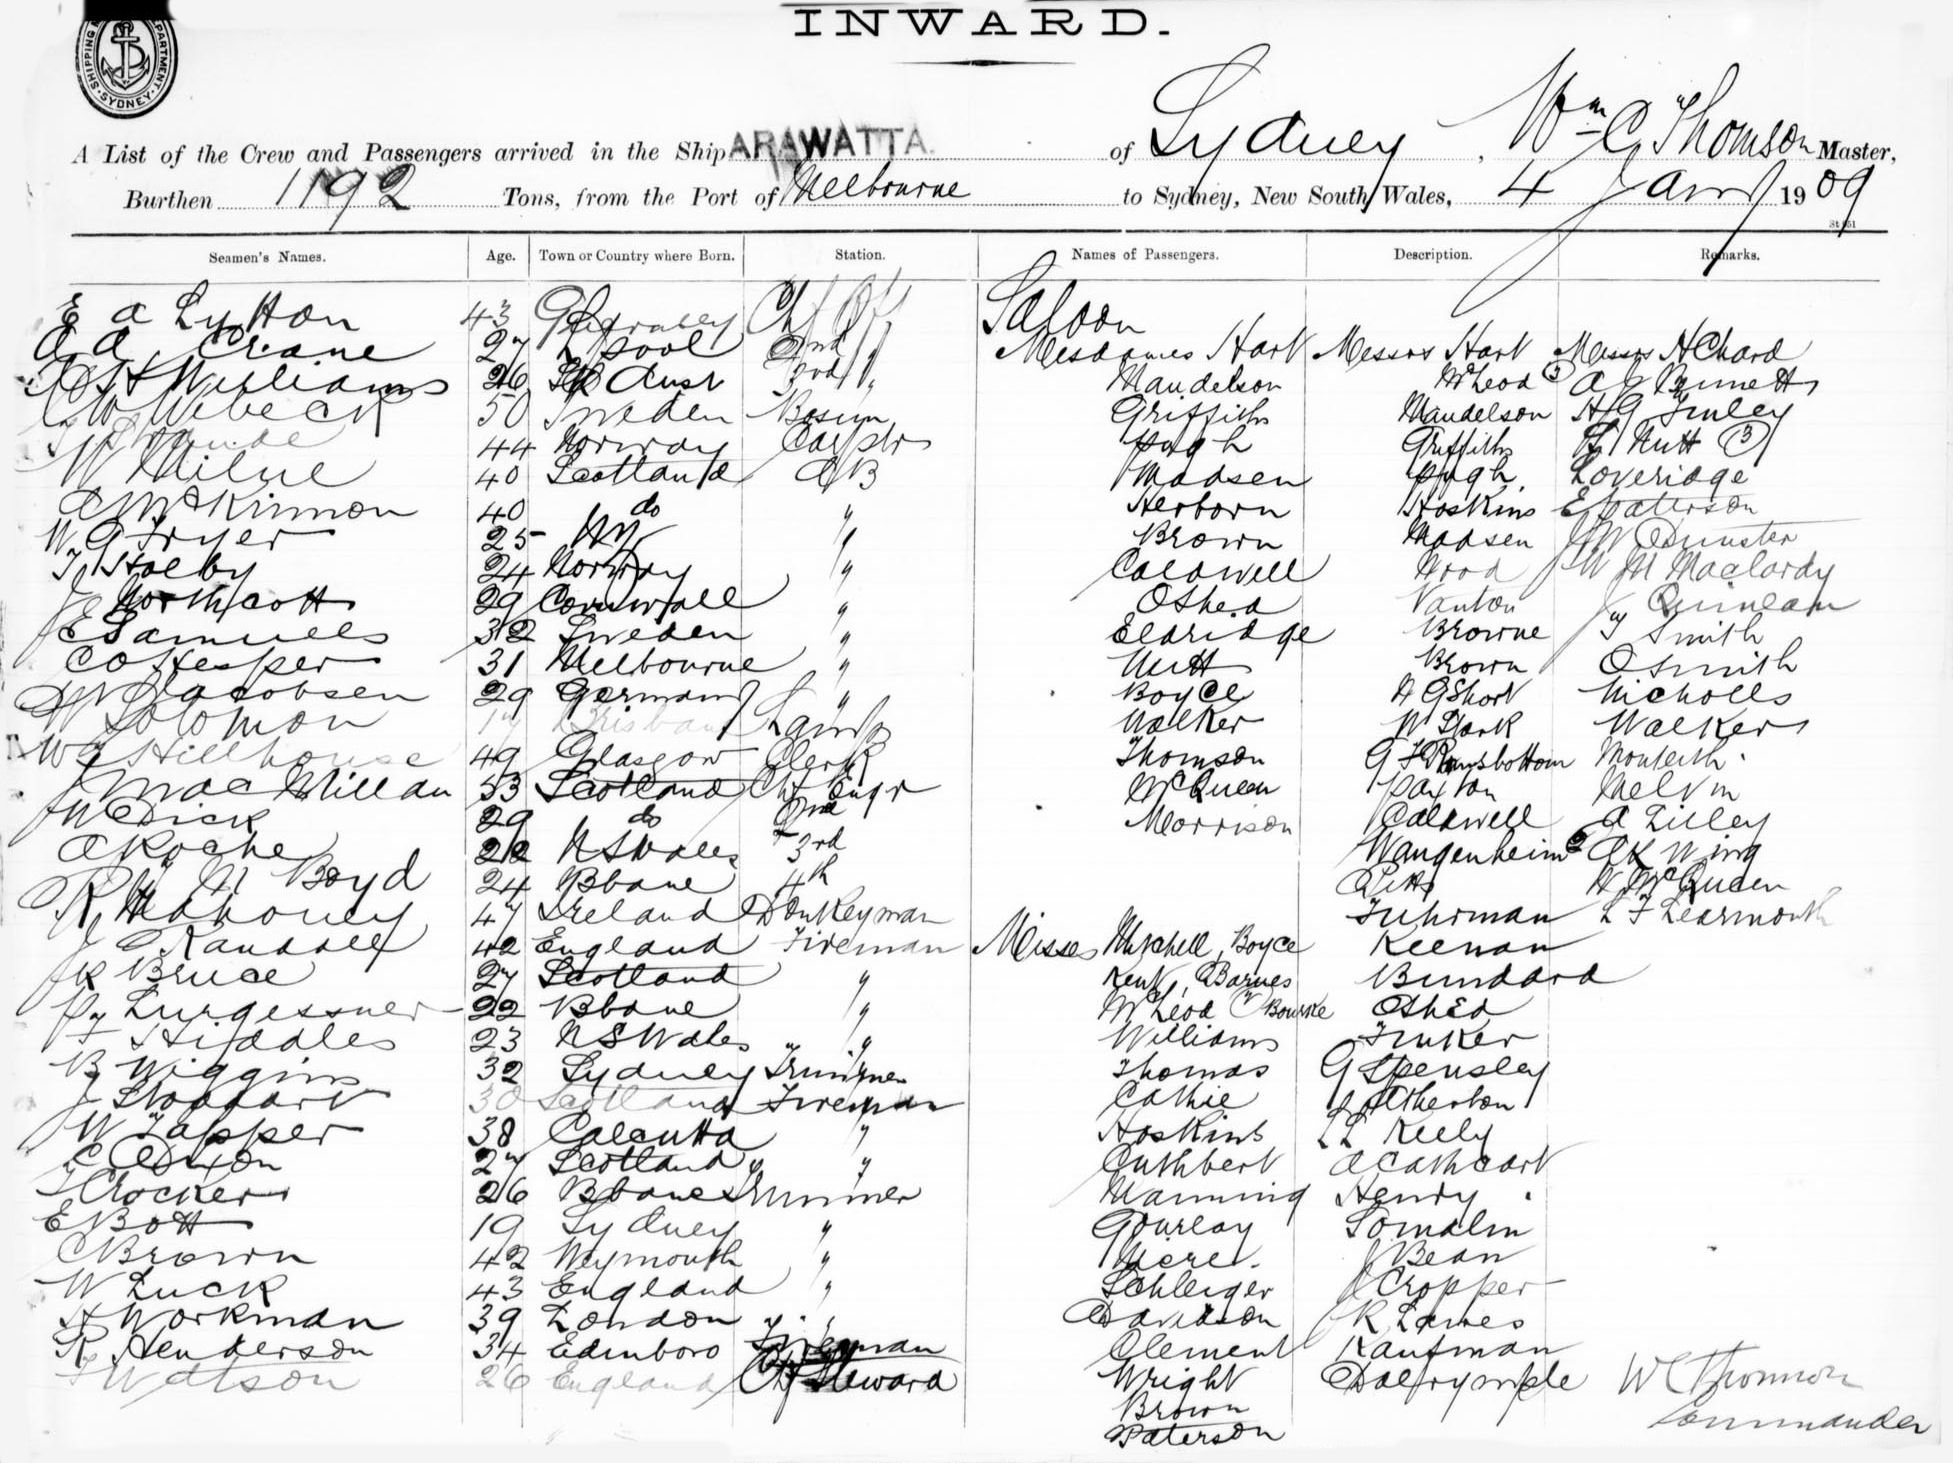 INWARD.
SHIPPING DEPARTMENT. SYDNEY.
A List of the Crew and Passengers arrived in the Ship ARAWATTA. of Sydney, Wm C Thomson Master,
Burthen 1192 Tons, from the Port of Melbourne to Sydney, New South Wales, 4 Jany 1909
Seamen's Names. Age. Town or Country where Born. Station. Names of Passengers. Description. Remarks.
Saloon
E A Lytton 43 Ch Off
A A Crane 27 L'pool 2nd " Mesdames Hart Messrs Hart Messrs H Chard
Williams 26 Aust 3rd " Mandelson McLeod
W Wibeck 50 Sweden Bosun Griffiths Mandelson H G Finley
44 Norway Carptr Pugh Griffiths Nutt (3)
W Milne 40 Scotland AB Madsen Pugh Loveridge
A McKinnon 40 do " Herborn Hoskins E Paterson
W G Fryer 25 " Brown Madsen J W Dunster
T Holby 24 Norway " Caldwell Wood W M Maclardy
J Northcott 29 Cornwall " O'Shea Vanton J Quinlan
J E Samuels 32 Sweden " Eldridge Browne T Smith
C O Hesper 31 Melbourne " Nutt Brown O Smith
W Jacobsen 29 Germany " Boyce H G Short Nicholls
W Solomon 17 Brisbane Lamps Walker W Park Walker
W G Hillhouse 49 Glasgow Clerk Thomson G F Ramsbottom Monteith
J MacMillan 53 Scotland Chf Engr McQueen Paxton Melvin
J W Dick 29 do 2nd Morrison Caldwell A Lilley
A Roche 22 N S Wales 3rd Wangenheim 2 A K Wing
R W M Boyd 24 Bbane 4th Pitts H McQueen
R Mahoney 47 Ireland Donkeyman Fuhrman L F Learmonth
J Randall 42 England Fireman Misses Mitchell, Boyce Keenan
J K Bruce 27 Scotland " Kent, Barnes Bundard
22 Bbane " McLeod Bourke O'Shea
F Hiddles 23 N S Wales " Williams Tinker
B Wiggins 32 Sydney Trimmer Thomas G Spensley
J Stoddart 30 Scotland Fireman Cathie Atherton
J W Tapper 38 Calcutta " Hoskins L L Kelly
C Dixon 27 Scotland " Cuthbert A Cathcart
T Crocker 26 Bbane Trimmer Manning Henry
E Bott 19 Sydney " Gourlay Lomalin
C Brown 42 Weymouth " J Bean
W Luck 43 England " Schleiger J Cropper
H Workman 39 London " Davidson R Lawes
R Henderson 34 Edinboro Fireman Clement Kaufman
T Watson 26 England Ch Steward Wright Dalrymple W C Thomson
Brown Commander
Paterson